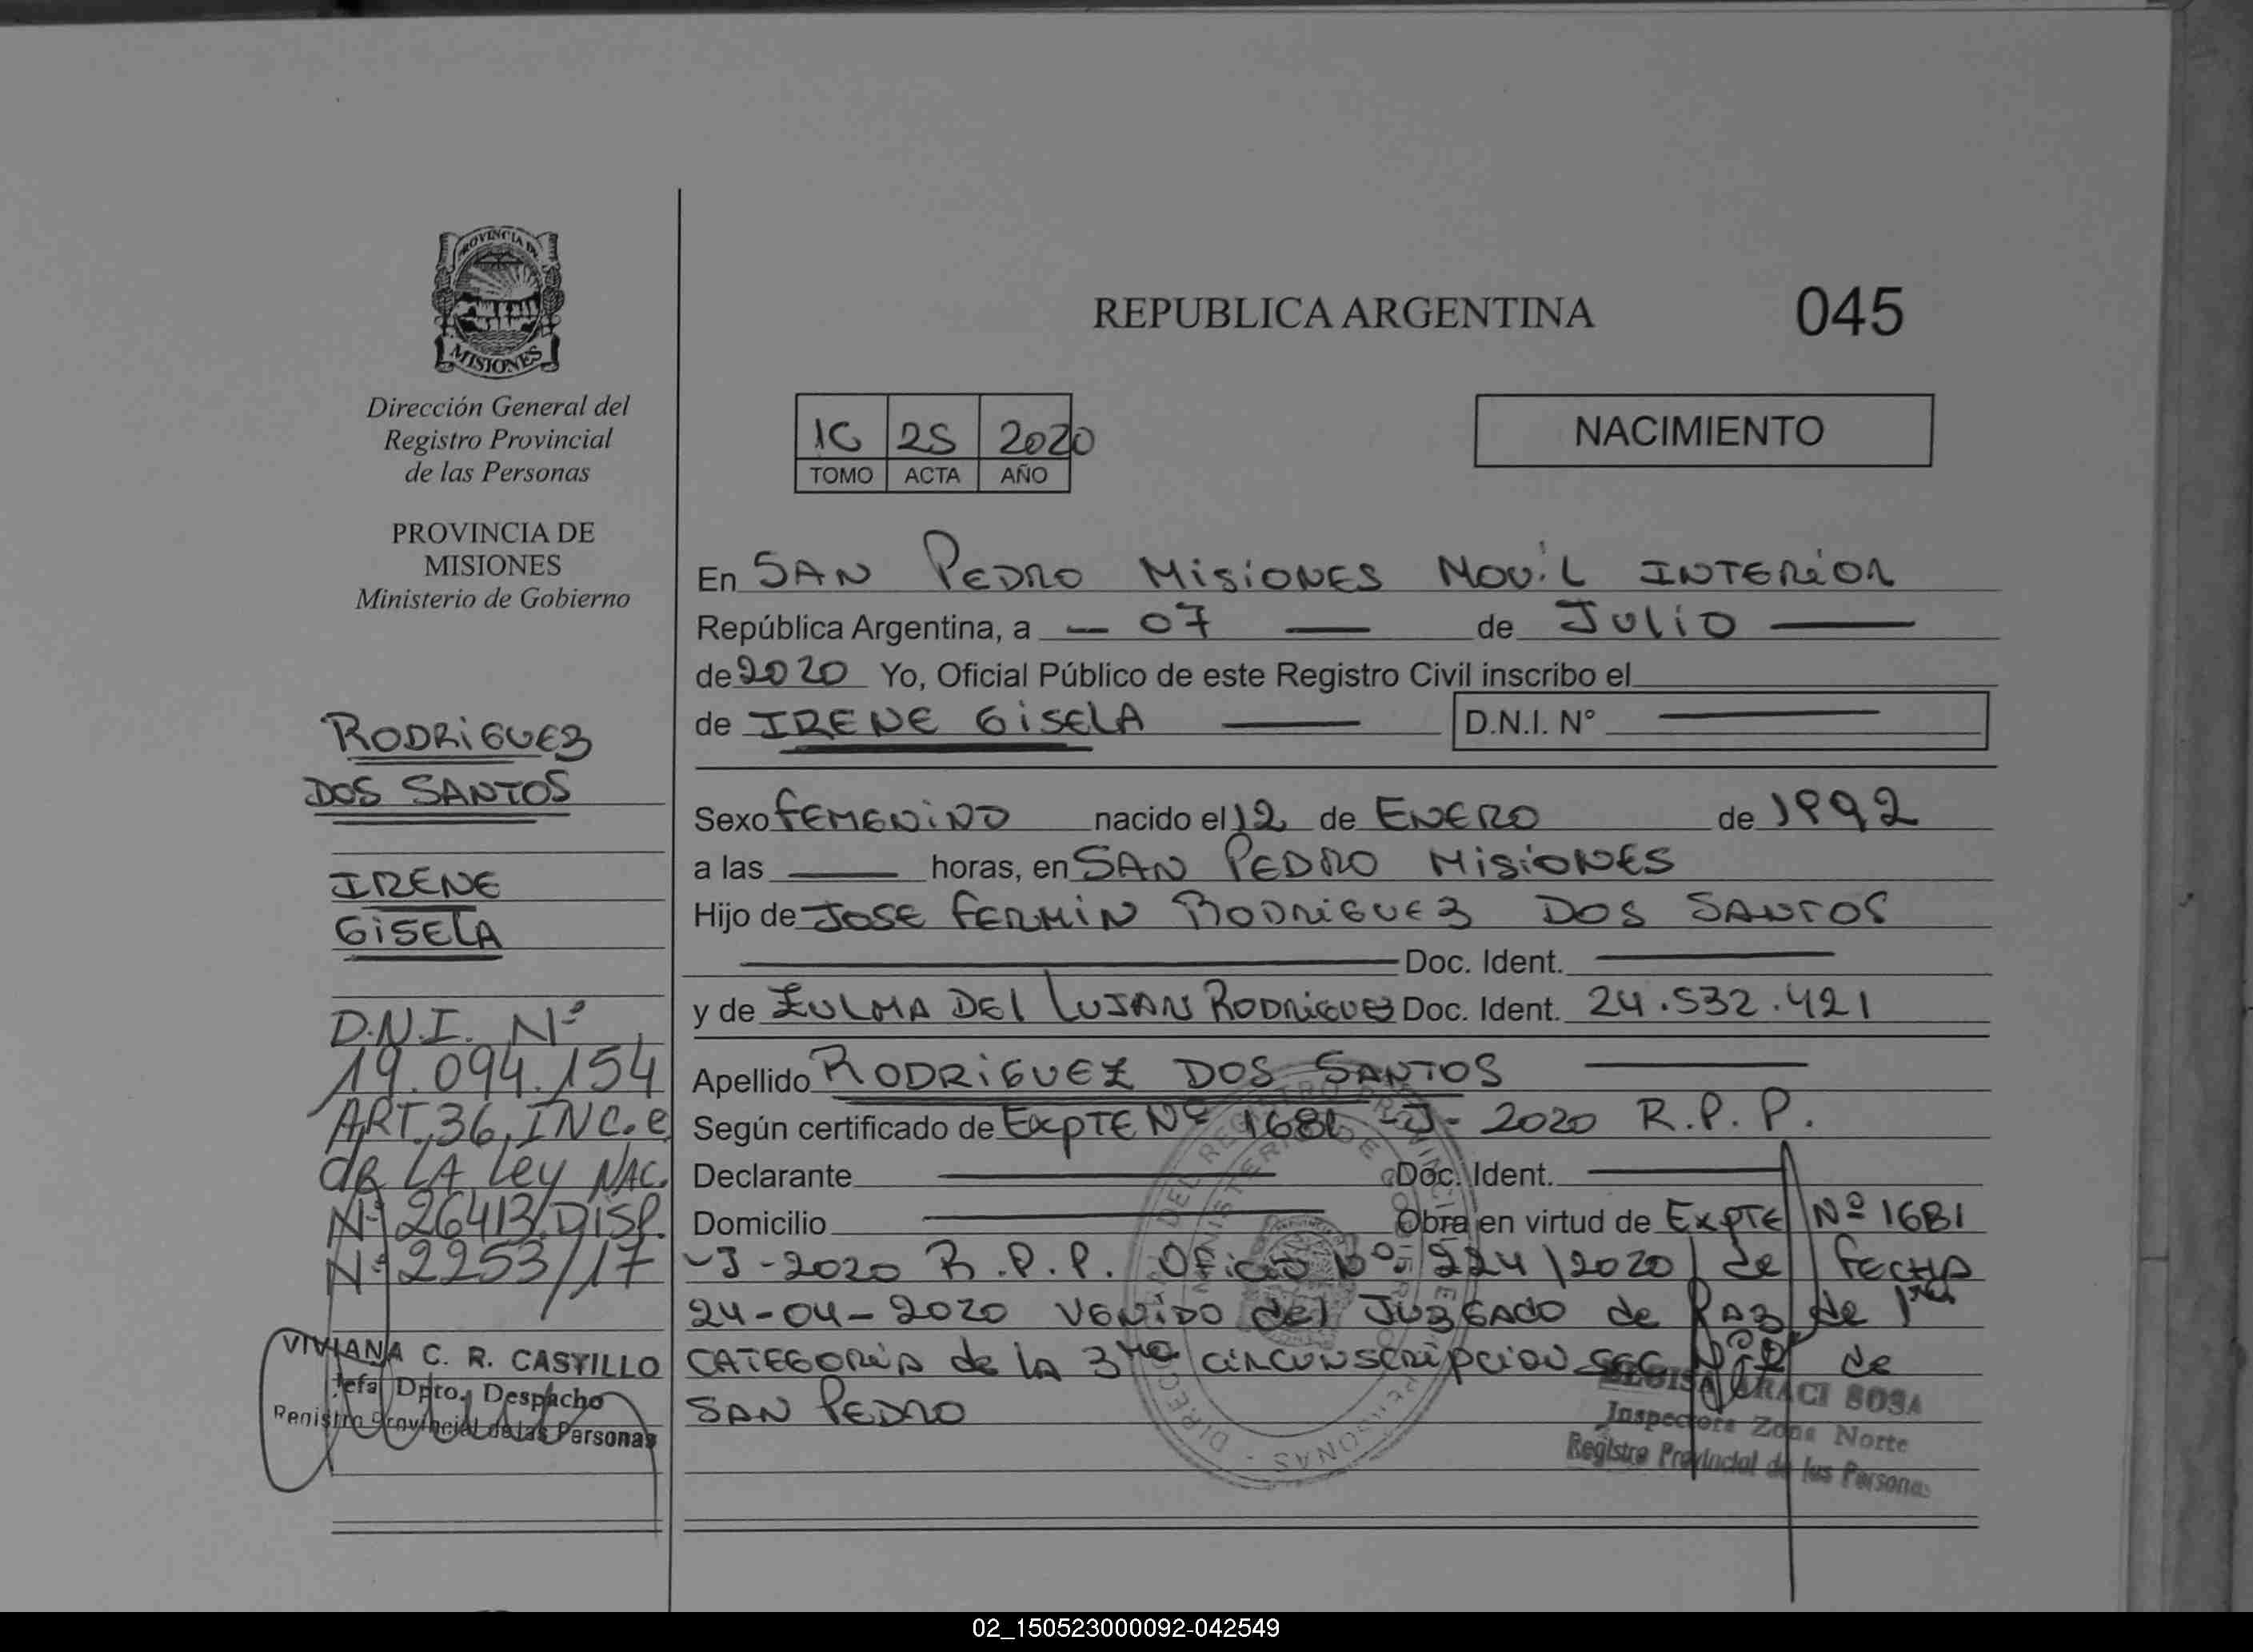 PROVINCIA DE
MISIONES
Dirección General del
Registro Provincial
de las Personas
PROVINCIA DE
MISIONES
Ministerio de Gobierno
RODRIGUEZ
DOS SANTOS
IRENE
GISELA
D.N.I. Nº
19.094.154
ART. 36, INC. e
de LA Ley NAC.
Nº 26413. DISP.
Nº 2253/17
VIVIANA C. R. CASTILLO
Jefa Dpto. Despacho
Registro Provincial de las Personas
REPUBLICA ARGENTINA
045
1C 25 2020
TOMO ACTA AÑO
NACIMIENTO
En SAN PEDRO MISIONES MOVIL INTERIOR
República Argentina, a — 07 — de JULIO —
de 2020 Yo, Oficial Público de este Registro Civil inscribo el
de IRENE GISELA — D.N.I. N° —
Sexo FEMENINO nacido el 12 de ENERO de 1992
a las — horas, en SAN PEDRO MISIONES
Hijo de JOSE FERMIN RODRIGUEZ DOS SANTOS
— Doc. Ident. —
y de ZULMA DEL LUJAN RODRIGUEZ Doc. Ident. 24.532.421
Apellido RODRIGUEZ DOS SANTOS —
Según certificado de EXPTE Nº 1681 -J- 2020 R.P.P.
Declarante — Doc. Ident. —
Domicilio — Obra en virtud de EXPTE Nº 1681
-J-2020 R.P.P. OFICIO Nº 224/2020 de FECHA
24-04-2020 VENIDO del JUZGADO de PAZ de 1ra
CATEGORIA de LA 3ra CIRCUNSCRIPCION SEC de
SAN PEDRO
ARACI SOSA
Inspectora Zona Norte
Registro Provincial de las Personas
02_150523000092-042549